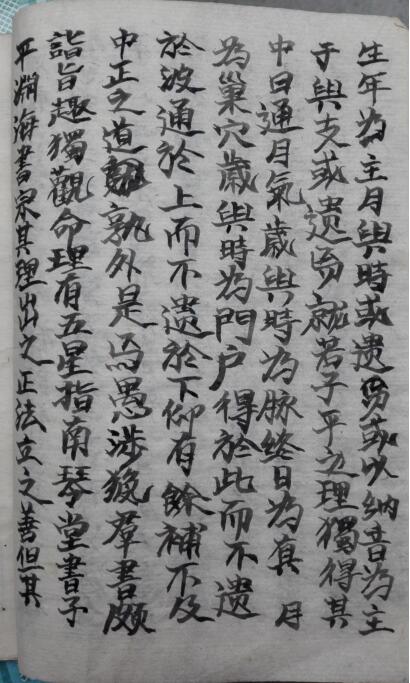 生年為主月與時或遗焉或以納音為主
于與支或遗焉就若子平之理獨得其
中日通月氣歲與時為脉终日為真月
為巢穴歲與時為門户得於此而不遗
於波通於上而不遗於下仰有餘補不及
中正之道孰外是焉愚涉猊羣書頗
詣旨趣獨觀命理有五星指南琴堂書子
平淵海書泉其理出之正法立之善但其